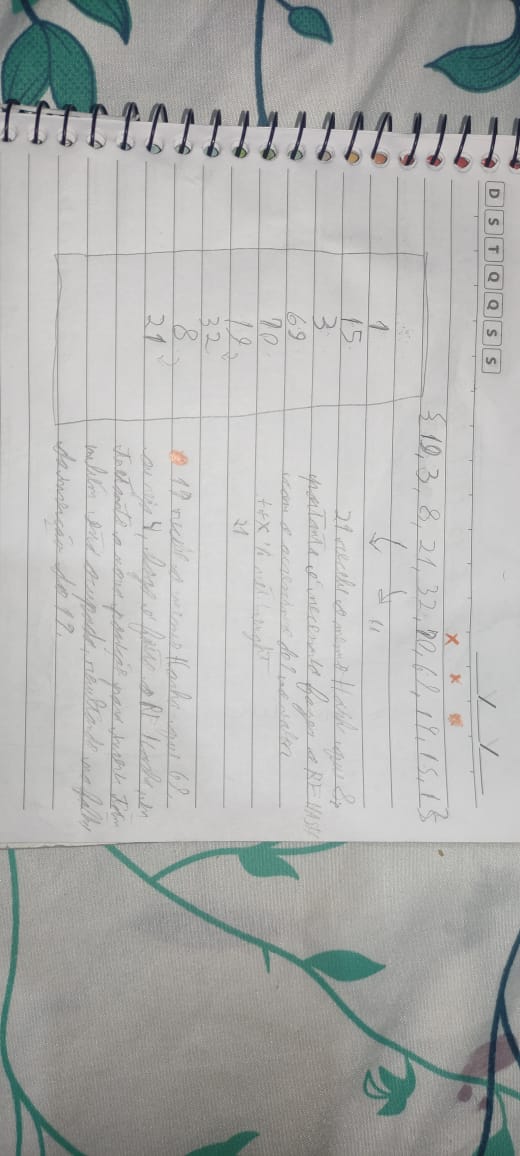 D S T Q Q S S
{19, 3, 8, 21, 32, 70, 69, 19, 15, 1}
1
15
3
69
70
19
32
8
21
21 recebe o mesmo Hash que 8,
portanto é necessário fazer o REHASH
com o acréscimo do 1 no valor
++x %
21
19 recebe o mesmo Hash que 69,
ou seja 4, logo é feito o RE Hash,
a nova posição para
ocupada, resultando na falha
da inserção do 19.